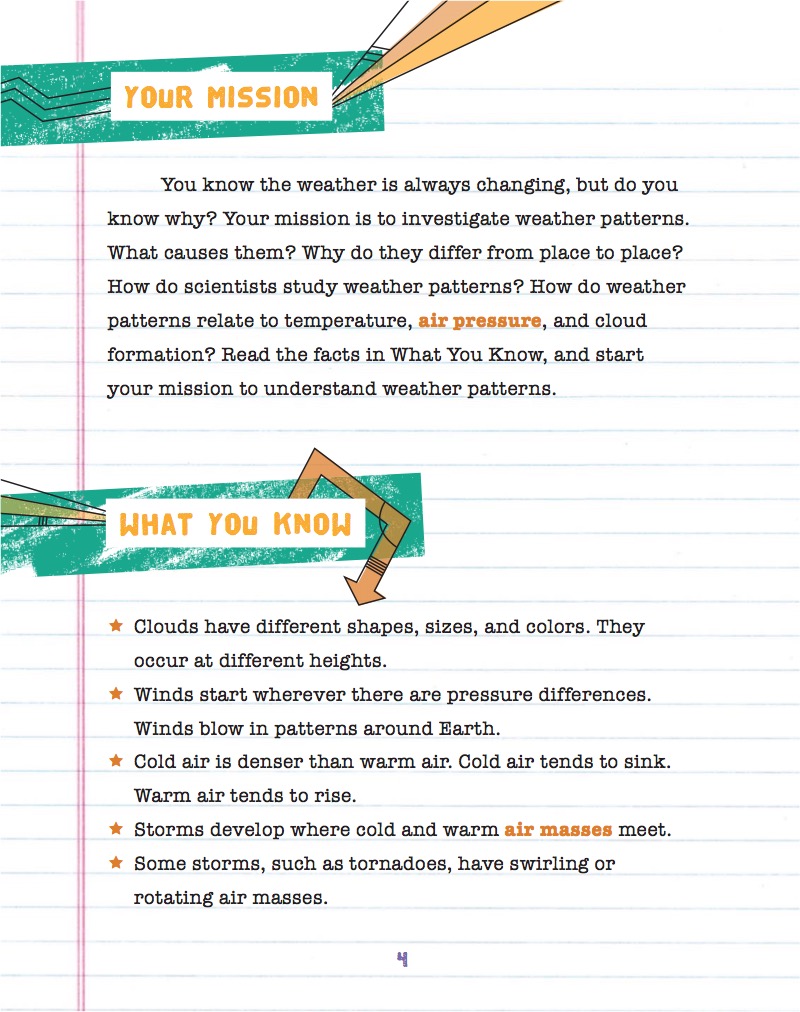 YOUR MISSION
You know the weather is always changing, but do you
know why? Your mission is to investigate weather patterns.
What causes them? Why do they differ from place to place?
How do scientists study weather patterns? How do weather
patterns relate to temperature, air pressure, and cloud
formation? Read the facts in What You Know, and start
your mission to understand weather patterns.
WHAT YOU KNOW
★ Clouds have different shapes, sizes, and colors. They
occur at different heights.
★ Winds start wherever there are pressure differences.
Winds blow in patterns around Earth.
★ Cold air is denser than warm air. Cold air tends to sink.
Warm air tends to rise.
★ Storms develop where cold and warm air masses meet.
★ Some storms, such as tornadoes, have swirling or
rotating air masses.
4